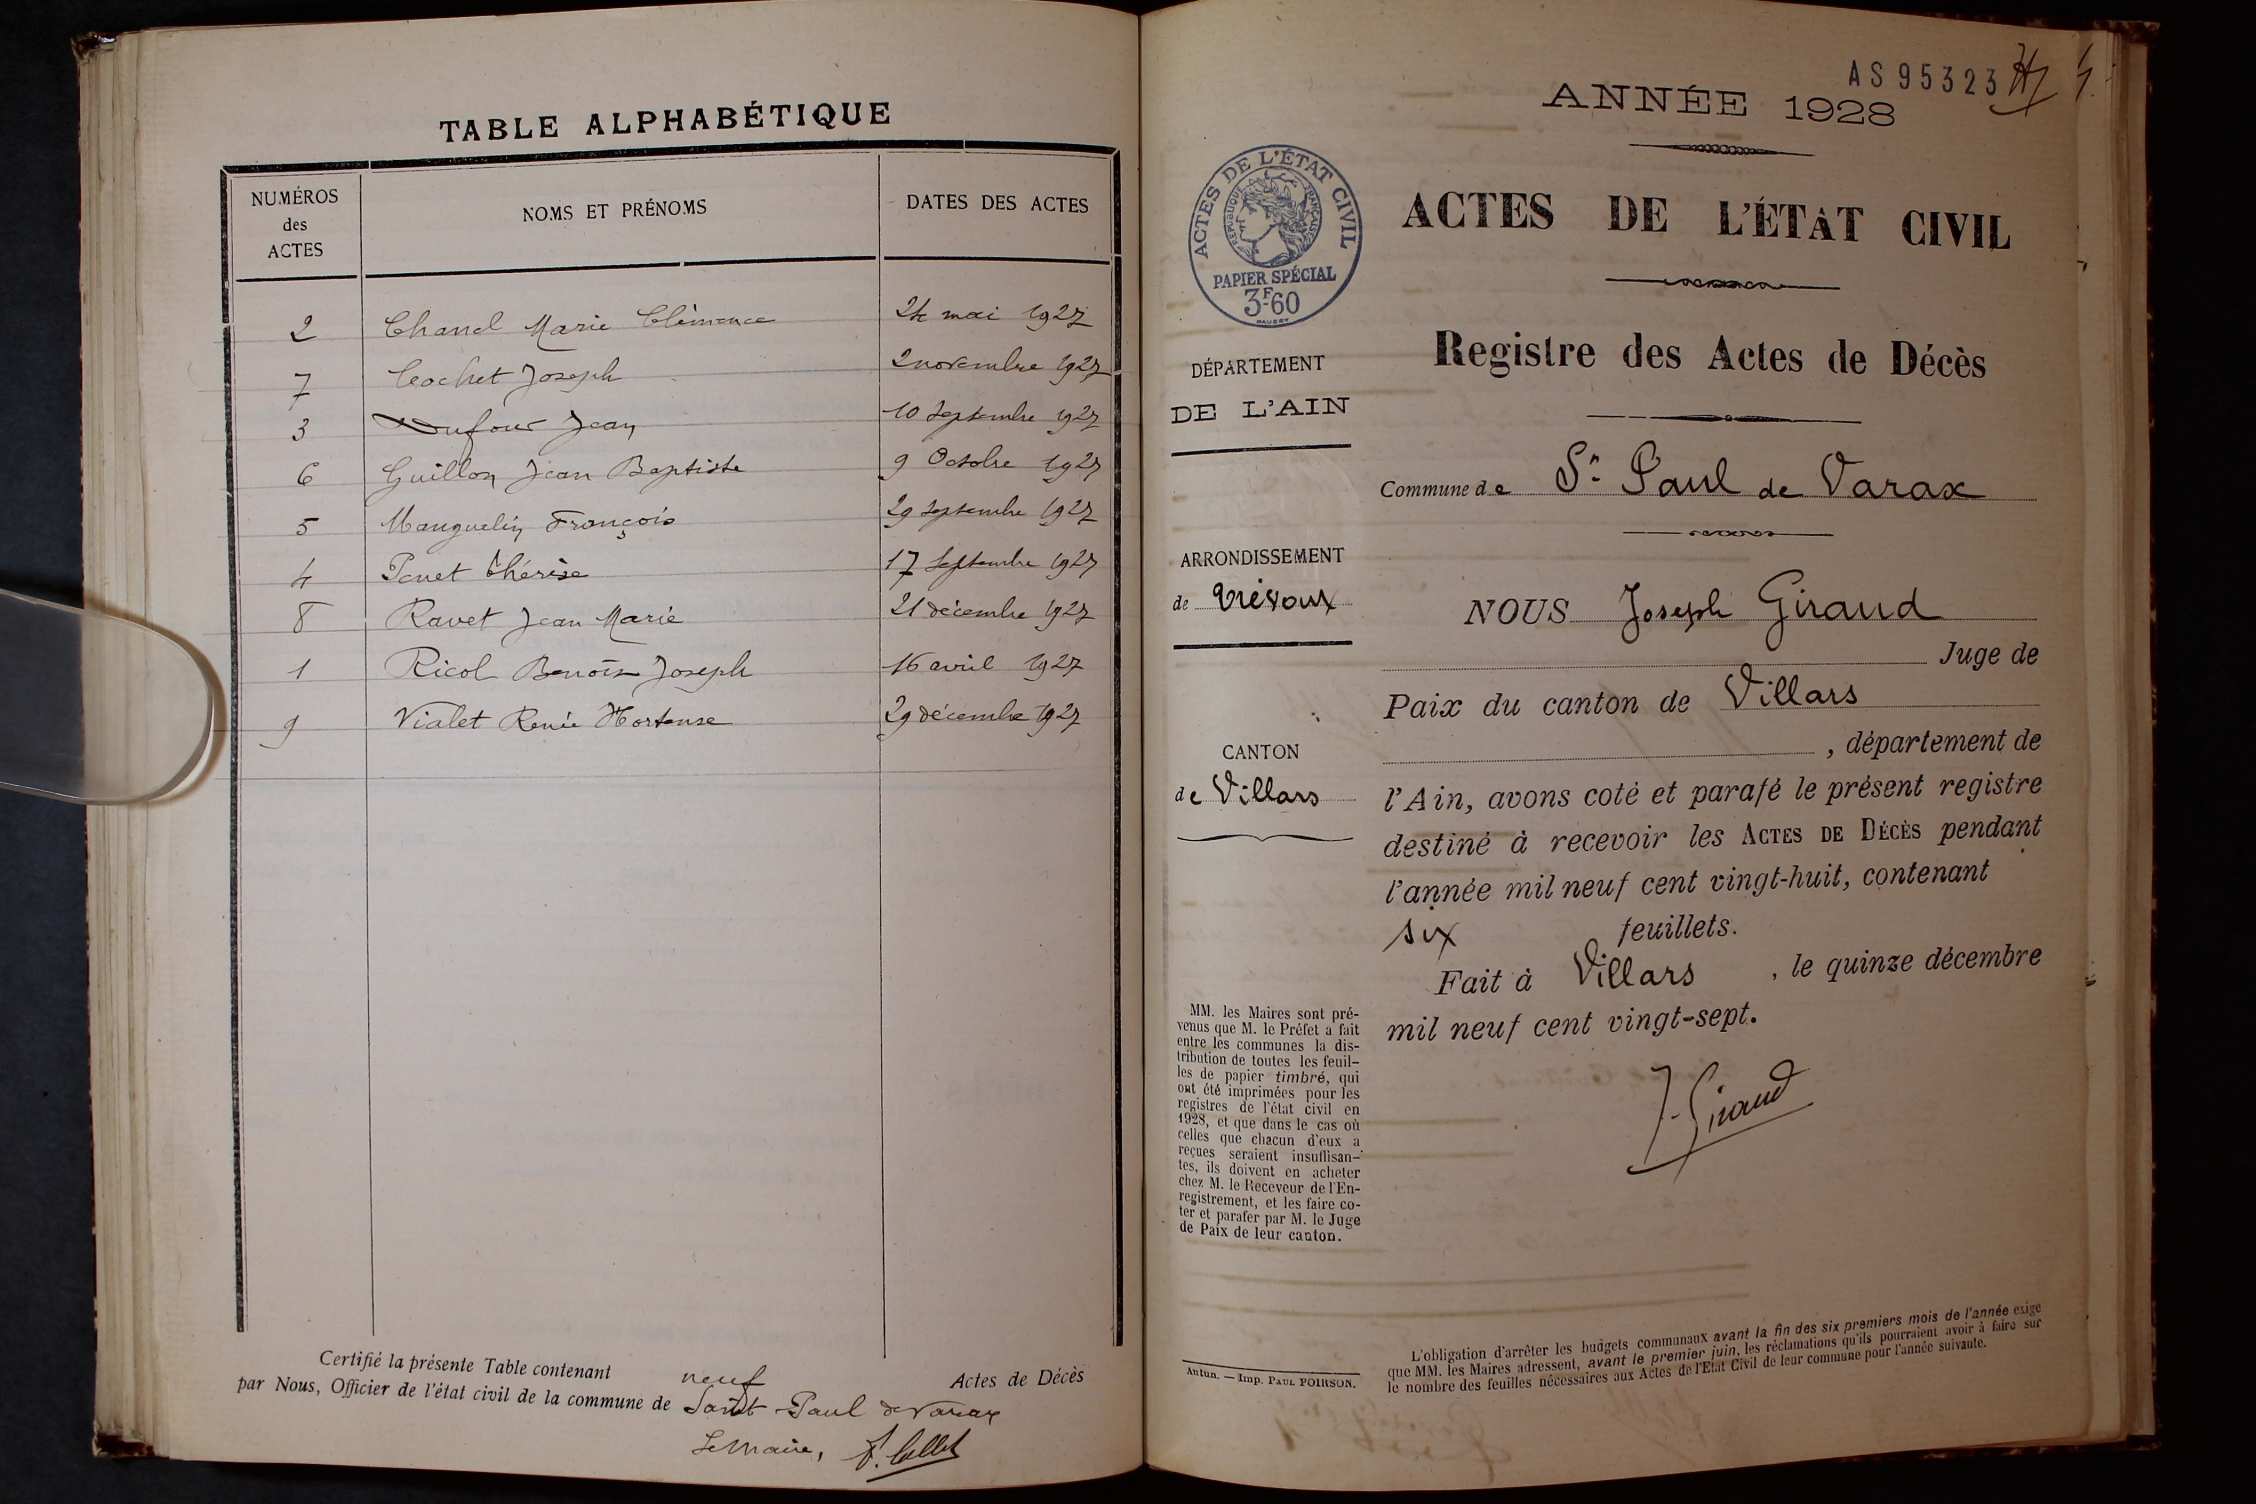 TABLE ALPHABÉTIQUE
NUMÉROS des ACTES
NOMS ET PRÉNOMS
DATES DES ACTES
2 Chanel Marie Clémence 24 mai 1927
7 Cochet Joseph 2 novembre 1927
3 Dufour Jean 10 Septembre 1927
6 Guillon Jean Baptiste 9 Octobre 1927
5 Manguelin François 29 Septembre 1927
4 Penet Thérèse 17 Septembre 1927
8 Ravet Jean Marie 21 décembre 1927
1 Ricol Benoît Joseph 16 avril 1927
9 Vialet Renée Hortense 29 décembre 1927
Certifié la présente Table contenant neuf Actes de Décès
par Nous, Officier de l'état civil de la commune de Saint Paul de Varax
Le Maire,
AS 95323
ANNÉE 1928
ACTES DE L'ÉTAT CIVIL
RÉPUBLIQUE FRANÇAISE
PAPIER SPÉCIAL
3F.60
ACTES DE L'ÉTAT CIVIL
Registre des Actes de Décès
DÉPARTEMENT
DE L'AIN
Commune de St Paul de Varax
ARRONDISSEMENT
de Trévoux
CANTON
de Villars
NOUS Joseph Giraud
Juge de
Paix du canton de Villars
, département de
l'Ain, avons coté et parafé le présent registre
destiné à recevoir les ACTES DE DÉCÈS pendant
l'année mil neuf cent vingt-huit, contenant
six feuillets.
Fait à Villars , le quinze décembre
mil neuf cent vingt-sept.
J. Giraud
MM. les Maires sont pré-
venus que M. le Préfet a fait
entre les communes la dis-
tribution de toutes les feuil-
les de papier timbré, qui
ont été imprimées pour les
registres de l'état civil en
1928, et que dans le cas où
celles que chacun d'eux a
reçues seraient insuffisan-
tes, ils doivent en acheter
chez M. le Receveur de l'En-
registrement, et les faire co-
ter et parafer par M. le Juge
de Paix de leur canton.
Autun. — Imp. PAUL POIRSON.
L'obligation d'arrêter les budgets communaux avant la fin des six premiers mois de l'année exige
que MM. les Maires adressent, avant le premier juin, les réclamations qu'ils pourraient avoir à faire sur
le nombre des feuilles nécessaires aux Actes de l'Etat Civil de leur commune pour l'année suivante.